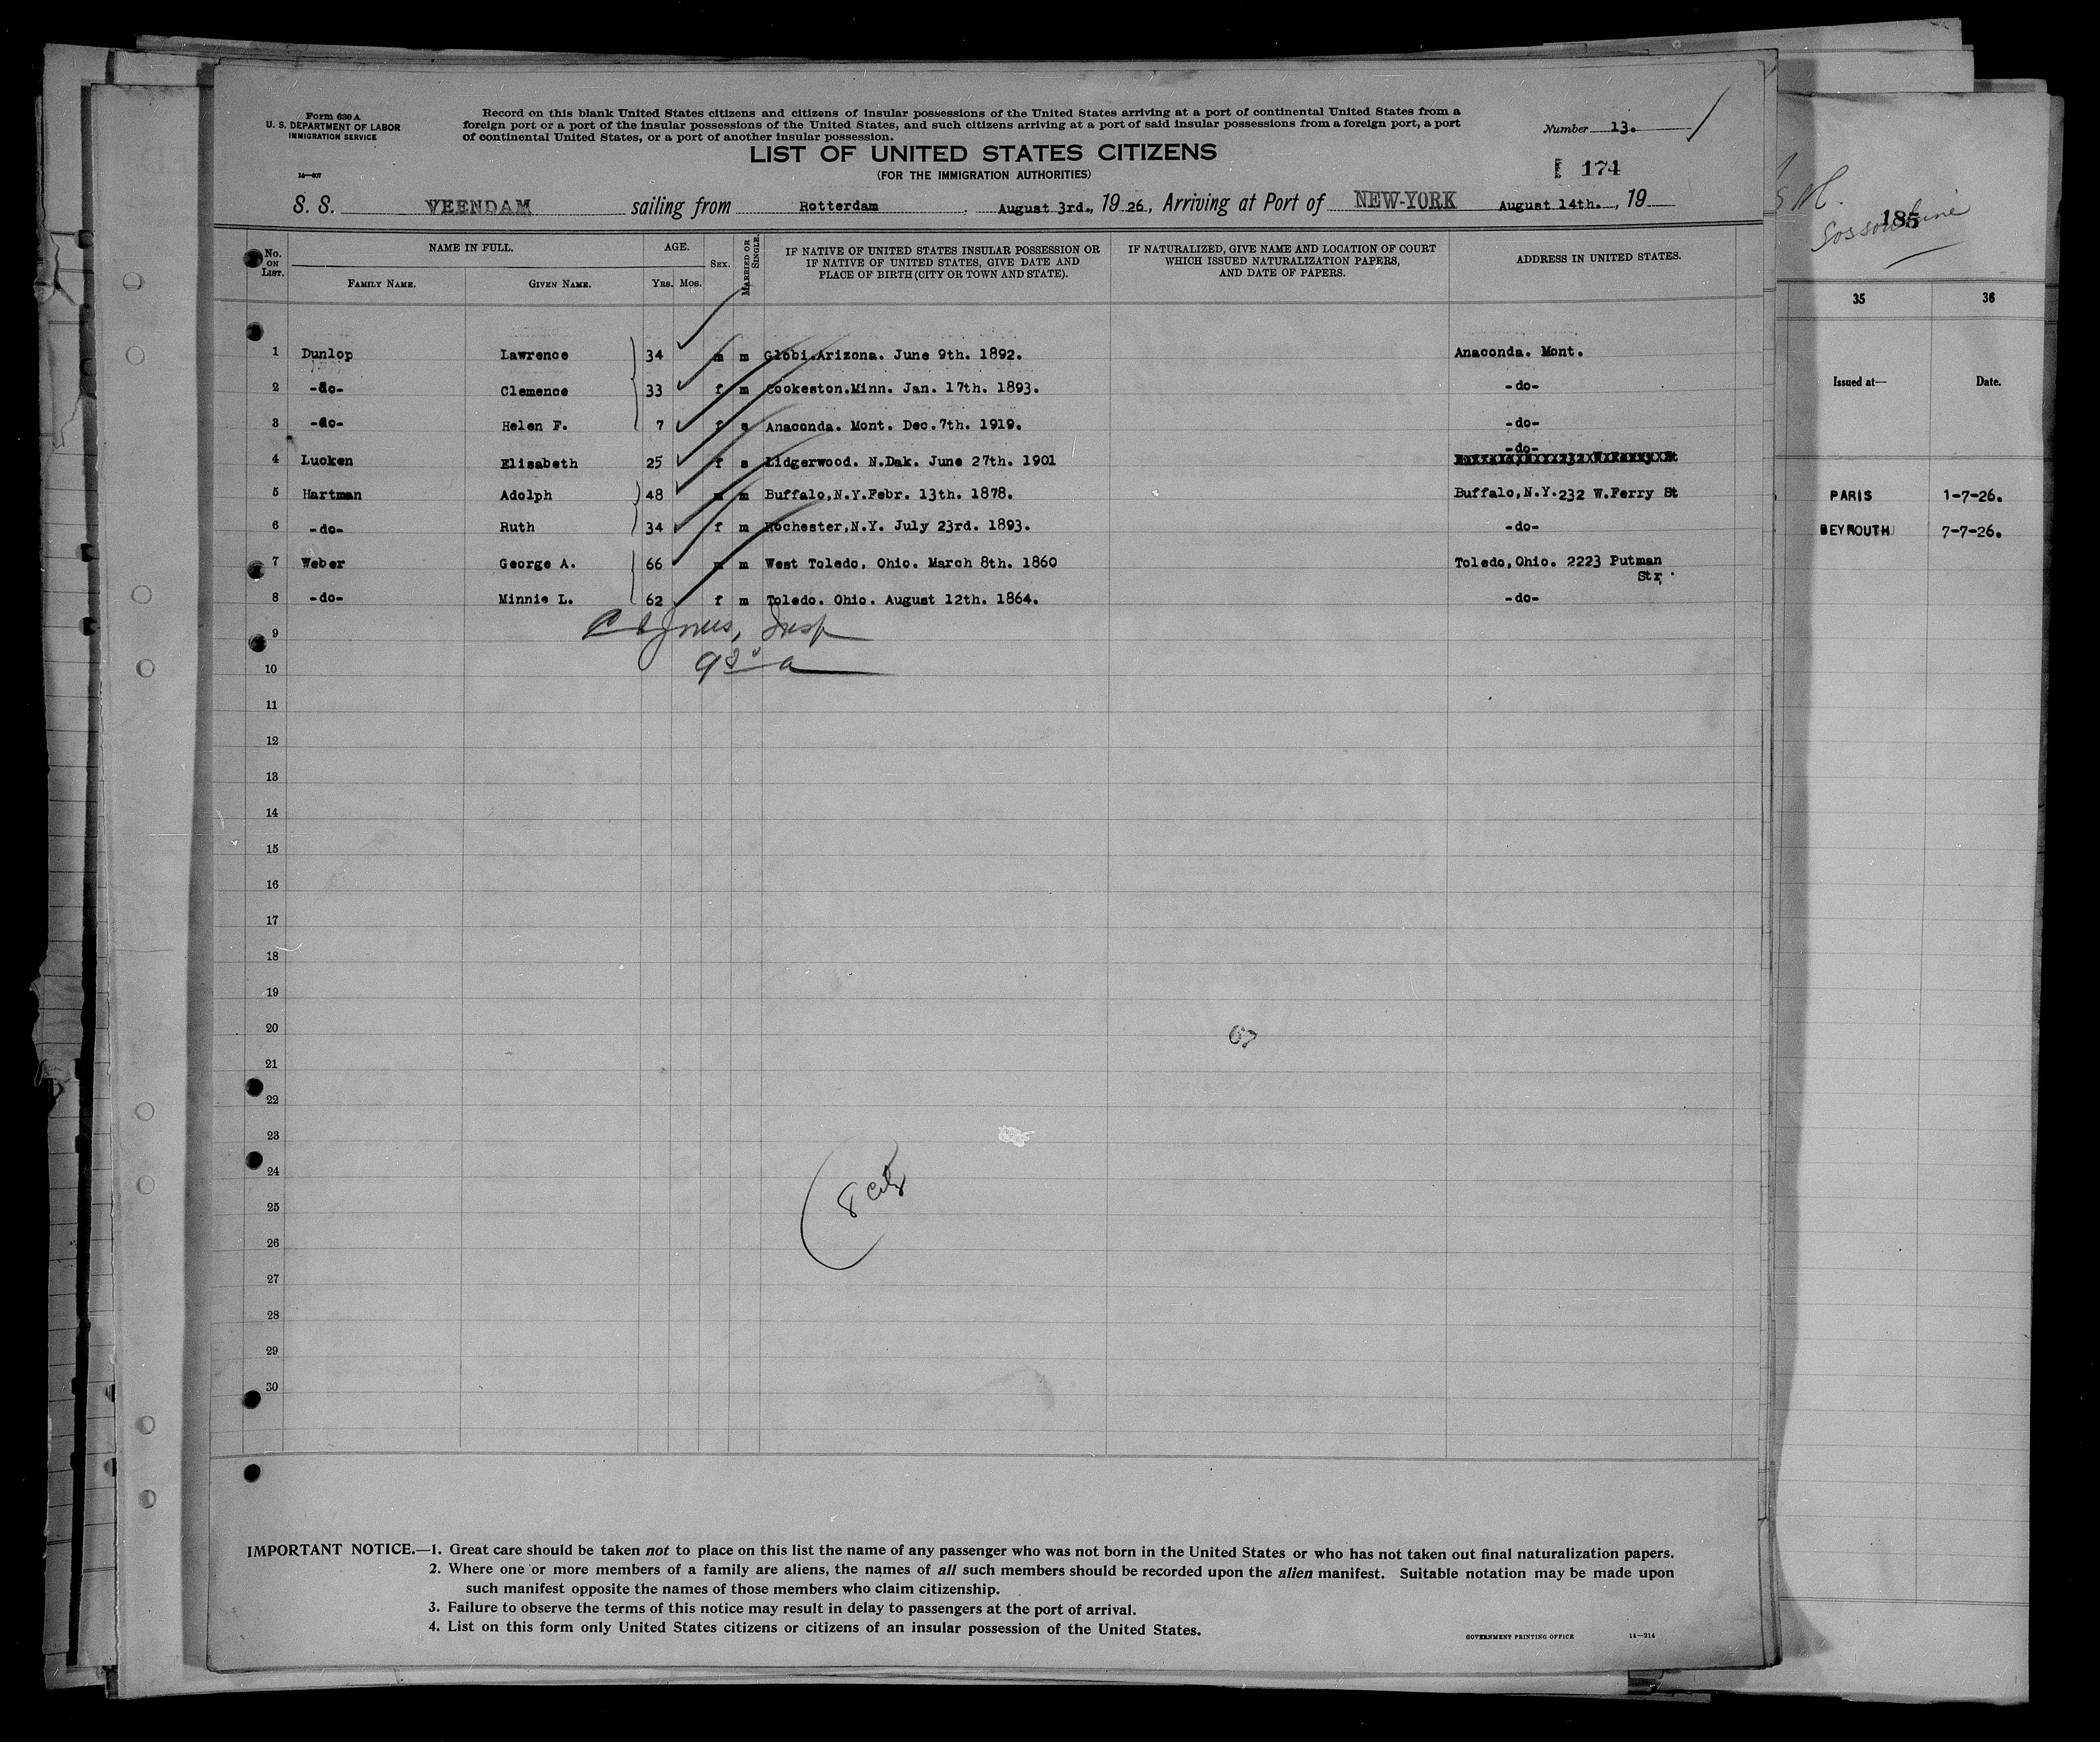 Form 630 A
U. S. DEPARTMENT OF LABOR
IMMIGRATION SERVICE
14—607
Record on this blank United States citizens and citizens of insular possessions of the United States arriving at a port of continental United States from a
foreign port or a port of the insular possessions of the United States, and such citizens arriving at a port of said insular possessions from a foreign port, a port
of continental United States, or a port of another insular possession.
Number 13.
LIST OF UNITED STATES CITIZENS
(FOR THE IMMIGRATION AUTHORITIES)
174
S. S. VEENDAM sailing from Rotterdam, August 3rd., 1926, Arriving at Port of NEW-YORK August 14th., 19
No. ON LIST.
NAME IN FULL.
FAMILY NAME.
GIVEN NAME.
AGE.
YRS. MOS.
SEX.
MARRIED OR SINGLE.
IF NATIVE OF UNITED STATES INSULAR POSSESSION OR
IF NATIVE OF UNITED STATES, GIVE DATE AND
PLACE OF BIRTH (CITY OR TOWN AND STATE).
IF NATURALIZED, GIVE NAME AND LOCATION OF COURT
WHICH ISSUED NATURALIZATION PAPERS,
AND DATE OF PAPERS.
ADDRESS IN UNITED STATES.
1 Dunlop Lawrence 34 m m Globi.Arizona. June 9th. 1892. Anaconda. Mont.
2 -do- Clemence 33 f m Cookeston.Minn. Jan. 17th. 1893. -do-
3 -do- Helen F. 7 f s Anaconda. Mont. Dec.7th. 1919. -do-
4 Lucken Elisabeth 25 f s Lidgerwood. N.Dak. June 27th. 1901 -do-
5 Hartman Adolph 48 m m Buffalo,N.Y.Febr. 13th. 1878. Buffalo,N.Y.232 W.Ferry St
6 -do- Ruth 34 f m Rochester,N.Y. July 23rd. 1893. -do-
7 Weber George A. 66 m m West Toledo, Ohio. March 8th. 1860 Toledo,Ohio. 2223 Putman
Str.
8 -do- Minnie L. 62 f m Toledo. Ohio. August 12th. 1864. -do-
9
10
11
12
13
14
15
16
17
18
19
20
67
21
22
23
24
25
8
26
27
28
29
30
IMPORTANT NOTICE.—1. Great care should be taken not to place on this list the name of any passenger who was not born in the United States or who has not taken out final naturalization papers.
2. Where one or more members of a family are aliens, the names of all such members should be recorded upon the alien manifest. Suitable notation may be made upon
such manifest opposite the names of those members who claim citizenship.
3. Failure to observe the terms of this notice may result in delay to passengers at the port of arrival.
4. List on this form only United States citizens or citizens of an insular possession of the United States.
GOVERNMENT PRINTING OFFICE 14—214
185
35 36
Issued at— Date.
PARIS 1-7-26.
BEYROUTH 7-7-26.